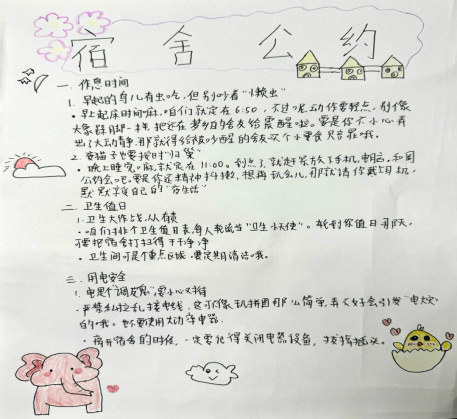 宿舍公约
一、作息时间
1. 早起的鸟儿有虫吃,但别吵着"懒虫"
• 早上起床时间嘛,咱们就定在6:50,不过呢,动作要轻点,别像
大象群聊一样,把还在梦乡的舍友给震醒啦。要是你不小心弄
出了大动静,那就得给被吵醒的舍友次个小零食只赔罪哦。
2. 夜猫子也要按时"归巢"
• 晚上睡觉嘛,就定在11:00。到点了,就赶紧放下手机,和周
公约会吧。要是你还精神抖擞,想再玩会儿,那就请你戴上耳机,
默默享受自己的"夜生活"
二、卫生值日
1. 卫生大作战,从有责
• 咱们排个卫生值日表,每人轮流当"卫生小天使"。轮到你值日那天,
要把宿舍打扫得干干净净
• 卫生间可是个重点区域,要定期清洁哦。
三、用电安全
1. 电是个"调皮鬼",要小心对待
• 严禁私拉乱接电线,这可不像玩拼图那么简单,弄不好会引发"电火灾"
的哦。也不要使用大功率电器
• 离开宿舍的时候,一定要记得关闭电器设备,拔掉插头。